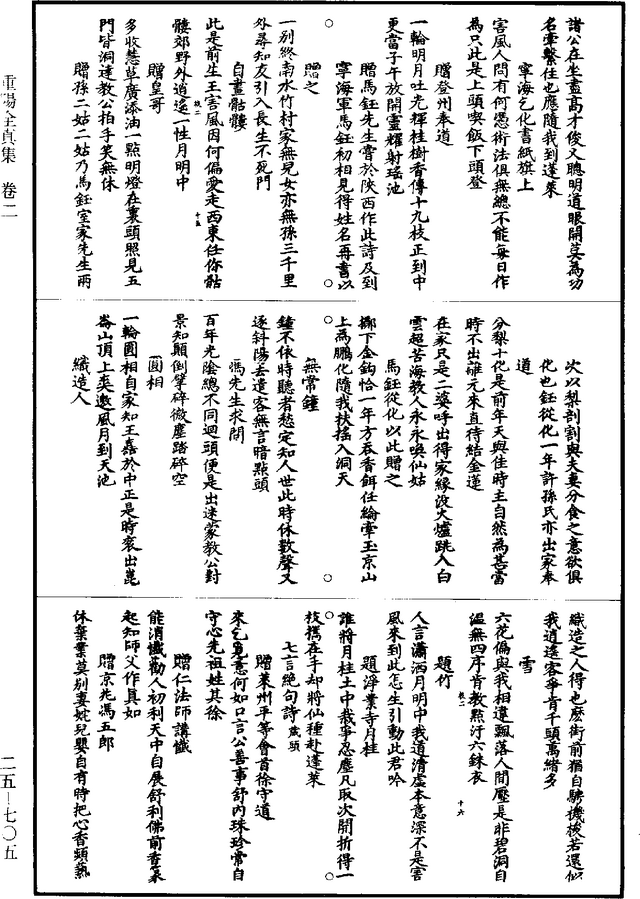 諸公在坐盡高才俊乂聰明道眼開莫為功
名牽繫住也應隨我到蓬萊
寧海乞化書紙旗上
害風人問有何憑術法俱無總不能每日作
為只此是上頭喫飯下頭登
贈登州奉道
一輪明月吐光輝桂樹香傳十九枝正到中
更當子午放開靈耀射瑤池
贈馬鈺先生嘗於陝西作此詩及到
寧海軍馬鈺初相見得姓名再書以
贈之
一別終南水竹村家無兒女亦無孫三千里
外尋知友引入長生不死門
自畫骷髏
此是前生王害風因何偏愛走西東任你骷
髏郊野外逍遙一性月明中
贈皇哥
多收慧草廣添油一點明燈在裏頭照見五
門皆洞達教公拍手笑無休
贈孫二姑二姑乃馬鈺室家先生兩
次以梨剖割與夫妻分食之意欲俱
化也鈺從化一年許孫氏亦出家奉
道
分梨十化是前年天與佳時主自然為甚當
時不出離元來直待結金蓮
在家只是二婆呼出得家緣沒火爐跳入白
雲超苦海教人永永喚仙姑
馬鈺從化以此贈之
擲下金鈎恰一年方吞香餌任綸牽玉京山
上為鵬化隨我扶搖入洞天
無常鐘
鐘不依時聽者愁定知人世此時休數聲又
逐斜陽去遺客無言暗點頭
馮先生求問
百年光陰總不同迴頭便是出迷蒙教公對
景知顛倒擘碎微塵踏碎空
圓相
一輪圓相自家知王嚞於中正是時衮出崑
崙山頂上來邀風月到天池
織造人
織造之人得也麽街前猶自騁機梭若還似
我逍遙客爭肯千頭萬緒多
雪
六花偏與我相違飄落人間壓是非碧洞自
溫無四序肯教點汙六銖衣
題竹
人言瀟洒月明中我道清虛本意深不是害
風來到此怎生引動此君吟
題淨業寺月桂
誰將月桂土中栽爭忍塵凡取次開折得一
枝攜在手却將仙種赴蓬萊
七言絕句詩 藏頭
贈萊州平等會首徐守道
來乞覓意何如口言公善事舒內珠珍常自
守心先祖姓其徐
贈仁法師講懺
能消懺勸人初利天中自展舒利佛前香篆
起知師父作真如
贈京兆馮五郎
休棄業莫別妻姹兒嬰自有時把心香頭爇
重陽全真集 卷二
二五—七〇五